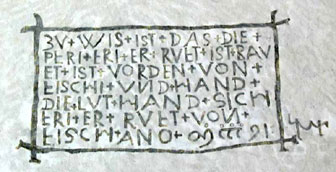 ZV + WIS + IST + DAS + DIE +
PERI + ERI + ER + RVET + IST + BAV
ET + IST + VORDEN + VON +
EISCHI + VND + HAND +
DIE LVT + HAND + SICH
ERI + ER + RVET + VON +
EISCH + ANO +